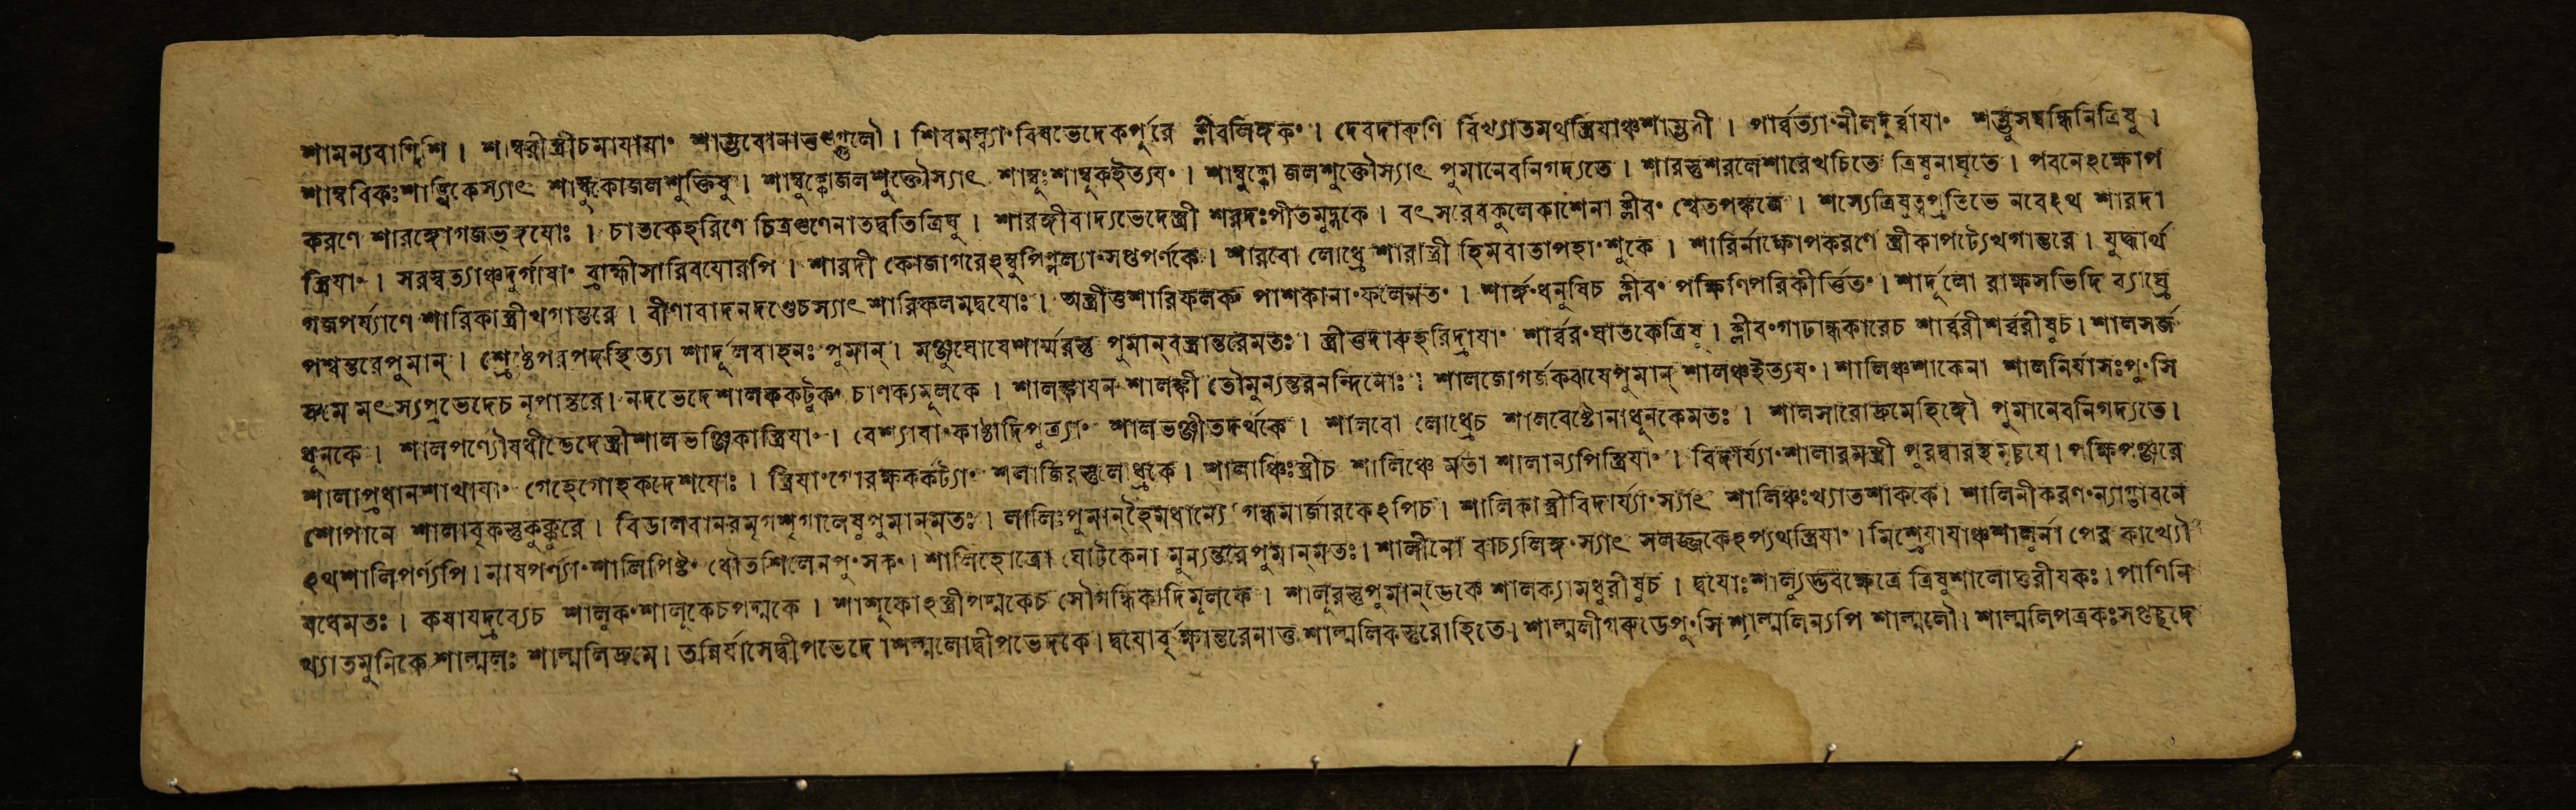 শামন্যবাপিশি । শাম্বরীস্ত্রীচমাযাযা° শাম্ভবোনাতুগুগ্গুলৌ । শিবমল্ল্যা°বিষভেদেকর্পূরে ক্লীবলিঙ্গক° । দেবদারুণি বিখ্যাতমথস্ত্রিযাঞ্চশাম্ভবী । পার্ব্বত্যা°নীলদুর্ব্বাযা° শম্ভুসম্বন্ধিনিত্রিষু ।
শাম্ববিকঃশাঙ্খিকেস্যাৎ শাম্বুকোজলশুক্তিষু । শাম্বুক্কোজলশুক্তৌস্যাৎ শাম্বূঃশাম্বূকইত্যয° । শাম্বুক্কো জলশুক্তৌস্যাৎ পুমানেবনিগদ্যতে । শারস্তুশরলেশারেখচিতে ত্রিষুনাঘৃতে । পবনেঽক্ষোপ
করণে শারঙ্গোগজভৃঙ্গযোঃ । চাতকেহরিণে চিত্রগুণেনাতদ্বতিত্রিষু । শারঙ্গীবাদ্যভেদেস্ত্রী শরদঃপীতমুদ্গকে । বৎসরেবকুলেকাশেনা ক্লীব° শ্বেতপঙ্কজে । শস্যেত্রিষুত্বপ্রতিভে নবেঽথ শারদা
স্ত্রিযা° । সরস্বত্যাঞ্চদুর্গাযা° ব্রাহ্মীসারিবযোরপি । শারদী কোজাগরেঽম্বুপিপ্পল্যা°সপ্তপর্ণকে । শারবো লোধ্রে শারাস্ত্রী হিমবাতাপহা°শুকে । শারির্নাক্ষোপকরণে স্ত্রীকাপট্যেখগান্তরে । যুদ্ধার্থ
গজপর্য্যাণে শারিকাস্ত্রীখগান্তরে । বীণাবাদনদণ্ডেচস্যাৎ শারিফলমদ্বযোঃ । অস্ত্রীতুশারিফলক° পাশকানা°ফলেমত° । শার্ঙ্গ°ধনুষিচ ক্লীব° পক্ষিণিপরিকীর্ত্তিত° । শার্দূলো রাক্ষসভিদি ব্যাঘ্রে
পশ্বন্তরেপুমান্ । শ্রেষ্ঠেপরপদস্থিত্যা শার্দূলবাহনঃ পুমান্ । মঞ্জুঘোষেশার্ম্মরস্তু পুমান্‌বস্ত্রান্তরেমতঃ । স্ত্রীতুদারুহরিদ্রাযা° শার্ব্বর°ঘাতকেত্রিষু । ক্লীব°গাঢান্ধকারেচ শার্ব্বরীশর্ব্বরীষুচ । শালসর্জ
দ্রুমে মৎস্যপ্রভেদেচ নৃপান্তরে । নদভেদেশালককটুক° চাণক্যমূলকে । শালঙ্কাযন শালঙ্কী তৌমুন্যন্তরনন্দিনোঃ । শালজোগর্জকঝষেপুমান্ শালঞ্চইত্যয° । শালিঞ্চশাকেনা শালনির্যাসঃপু°সি
ধূনকে । শালপর্ণ্যৌষধীভেদেস্ত্রীশালভঞ্জিকাস্ত্রিযা° । বেশ্যাযা°কাষ্ঠাদিপুত্র্যা° শালভঞ্জীতদর্থকে । শালবো লোধ্রেচ শালবেষ্টোনাধূনকেমতঃ । শালসারোদ্রুমেহিঙ্গৌ পুমানেবনিগদ্যতে ।
শালাপ্রধানশাখাযা° গেহেগোহকদেশযোঃ । স্ত্রিযা°গোরক্ষকর্কট্যা° শলাজিরস্তুলোধ্রকে । শালাঞ্চিঃস্ত্রীচ শালিঞ্চে মতা শালান্যপিস্ত্রিযা° । বিদার্য্যা°শালারমস্ত্রী পুরদ্বারহ । পক্ষিপঞ্জরে
শোপানে শালাবৃকস্তুকুক্কুরে । বিডালবানরমৃগশৃগালেষুপুমান্‌মতঃ । লালিঃপুমান্‌হৈমধান্যে গন্ধমার্জারকেঽপিচ । শালিকাস্ত্রীবিদার্য্যা°স্যাৎ শালিঞ্চঃখ্যাতশাককে । শালিনীকরণ°ন্যাগ্ভাবনে
ঽথশালিপর্ণ্যপি । মাষপর্ণ্যা°শালিপিষ্ট° ধৌতশিলেনপু°সক° । শালিহোত্রো ঘোটকেনা মুন্যন্তরেপুমান্‌মতঃ । শালীনো বাচ্যলিঙ্গ°স্যাৎ সলজ্জকেঽপ্যথস্ত্রিযা° । মিশ্রেযাযাঞ্চশালুর্না
বধেমতঃ । কষাযদ্রব্যেচ শালুক°শালূকেচপদ্মকে । শাশূকোঽস্ত্রীপদ্মকেচ সৌগন্ধিকাদিমূলকে । শালূরস্তুপুমান্‌ভেকে শালক্যামধুরীষুচ । দ্বযোঃশাল্যুদ্ভবক্ষেত্রে ত্রিষুশালোত্তরীযকঃ । পাণিনি
খ্যাতমুনিকে শাল্মলঃ শাল্মলিদ্রুমে । তন্নির্যাসেদ্বীপভেদে । শল্মলোদ্বীপভেদকে । দ্বযোর্বৃক্ষান্তরেনাতু শাল্মলিকস্তুরোহিতে । শাল্মলীগরুডেপু°সি শাল্মলিন্যপি শাল্মলৌ । শাল্মলিপত্রকঃসপ্তছদে